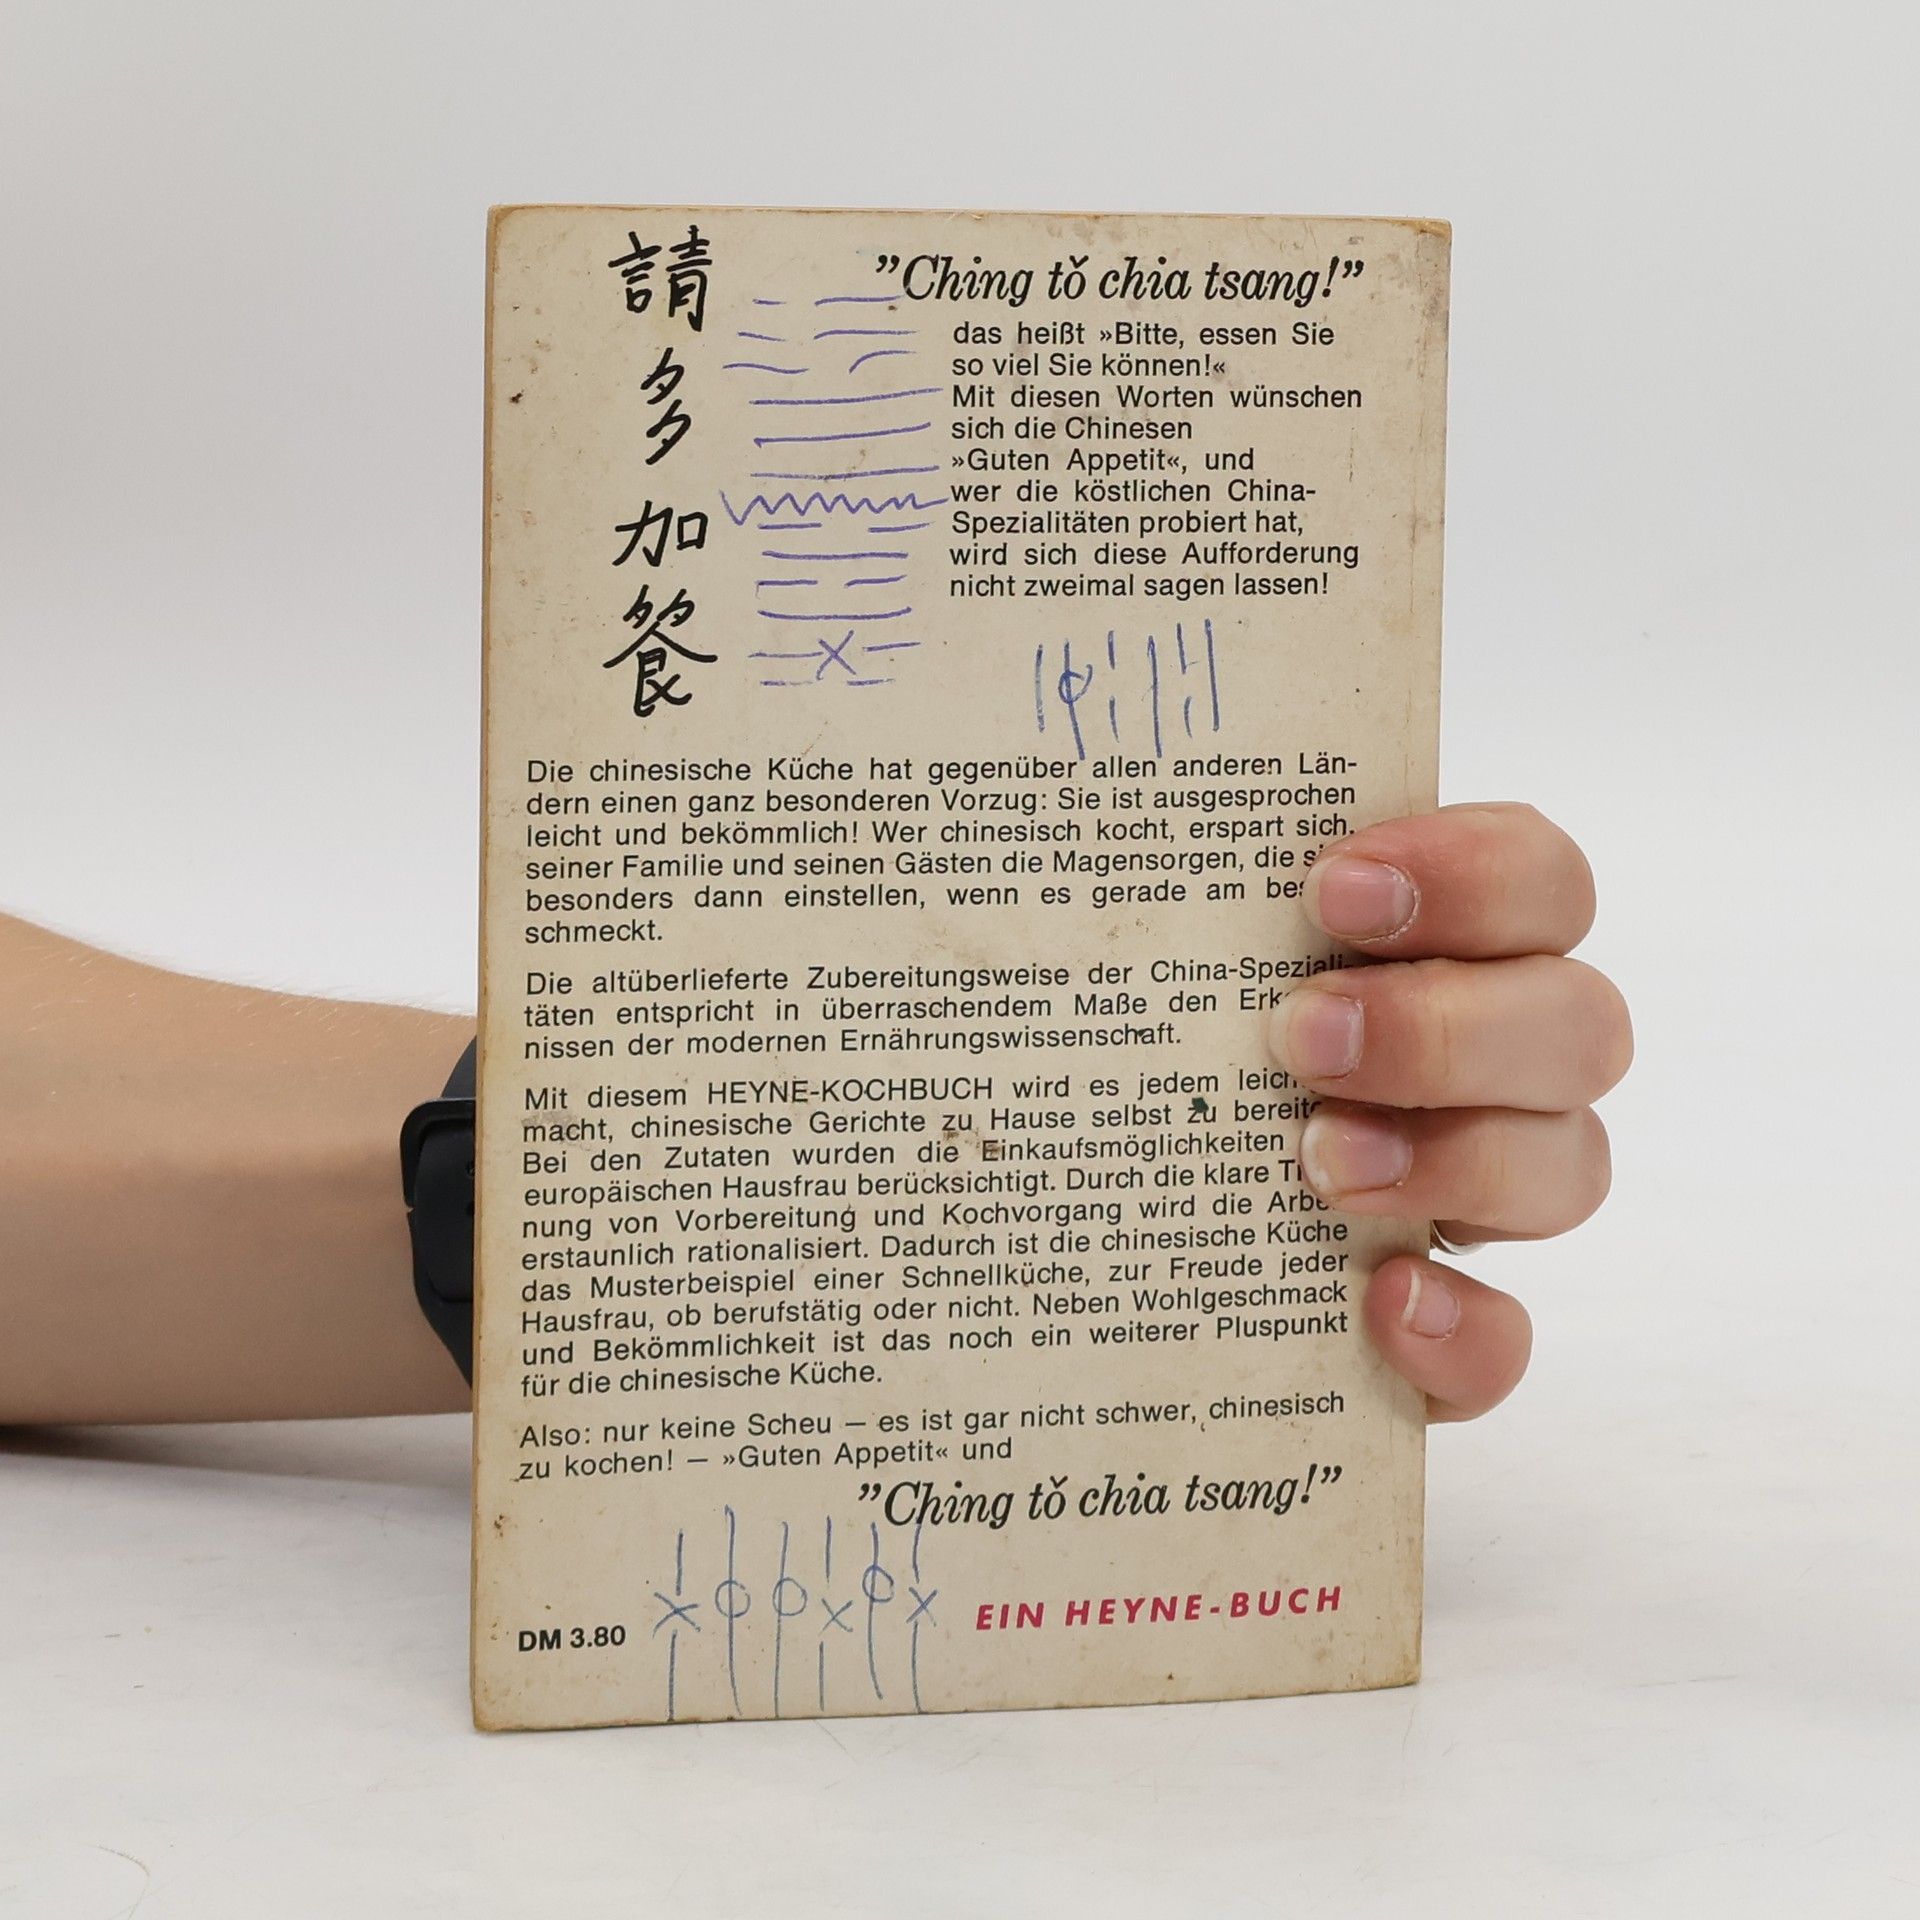 請多加餐
”Ching tǒ chia tsang!”
das heißt »Bitte, essen Sie
so viel Sie können!«
Mit diesen Worten wünschen
sich die Chinesen
»Guten Appetit«, und
wer die köstlichen China-
Spezialitäten probiert hat,
wird sich diese Aufforderung
nicht zweimal sagen lassen!
Die chinesische Küche hat gegenüber allen anderen Län-
dern einen ganz besonderen Vorzug: Sie ist ausgesprochen
leicht und bekömmlich! Wer chinesisch kocht, erspart sich,
seiner Familie und seinen Gästen die Magensorgen, die
besonders dann einstellen, wenn es gerade am
schmeckt.
Die altüberlieferte Zubereitungsweise der China-Speziali-
täten entspricht in überraschendem Maße den
nissen der modernen Ernährungswissenschaft.
Mit diesem HEYNE-KOCHBUCH wird es jedem
macht, chinesische Gerichte zu Hause selbst zu
Bei den Zutaten wurden die Einkaufsmöglichkeiten
europäischen Hausfrau berücksichtigt. Durch die klare
nung von Vorbereitung und Kochvorgang wird die
erstaunlich rationalisiert. Dadurch ist die chinesische Küche
das Musterbeispiel einer Schnellküche, zur Freude jeder
Hausfrau, ob berufstätig oder nicht. Neben Wohlgeschmack
und Bekömmlichkeit ist das noch ein weiterer Pluspunkt
für die chinesische Küche.
Also: nur keine Scheu – es ist gar nicht schwer, chinesisch
zu kochen! – »Guten Appetit« und
”Ching tǒ chia tsang!”
DM 3.80
EIN HEYNE-BUCH